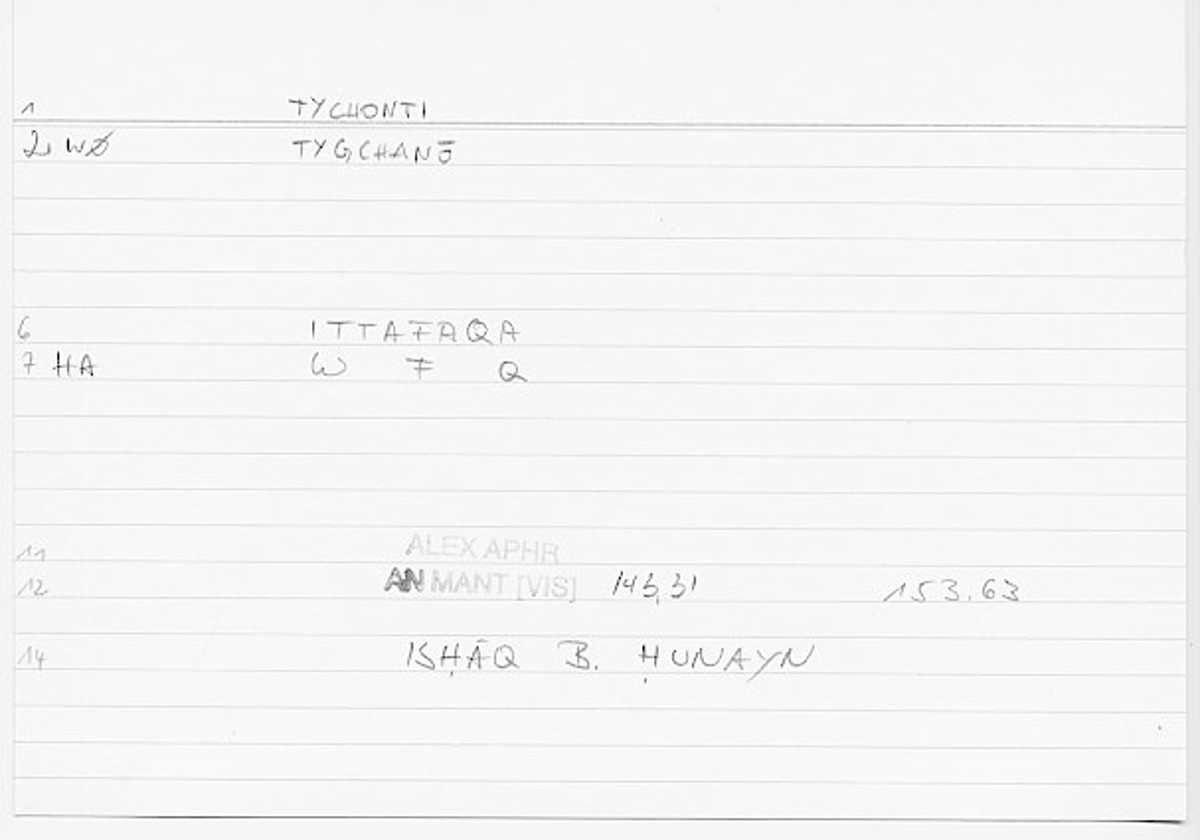 1 TYCHONTI
2, WØ TYGCHANŌ
6 ITTAFAQA
7 HA W F Q
11 ALEX APHR
12 AN MANT [VIS] 143,31 153.63
14 ISḤĀQ B. ḤUNAYN